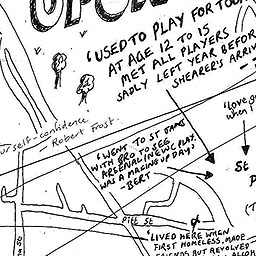 'USED TO PLAY FOR TOON
AT AGE 12 TO 15
MET ALL PLAYERS
SADLY LEFT YEAR BEFORE
SHEARER'S
self-confidence
Robert Frost.
'Love
when I
'WENT TO ST JAMES
WITH BRO TO SEE
ARSENAL/NEWC PLAY.
WAS A MAKING UP DAY'
- BERT
St
Pitt St
'LIVED HERE WHEN
FIRST HOMELESS. MADE
FRIENDS BUT REVOLVED